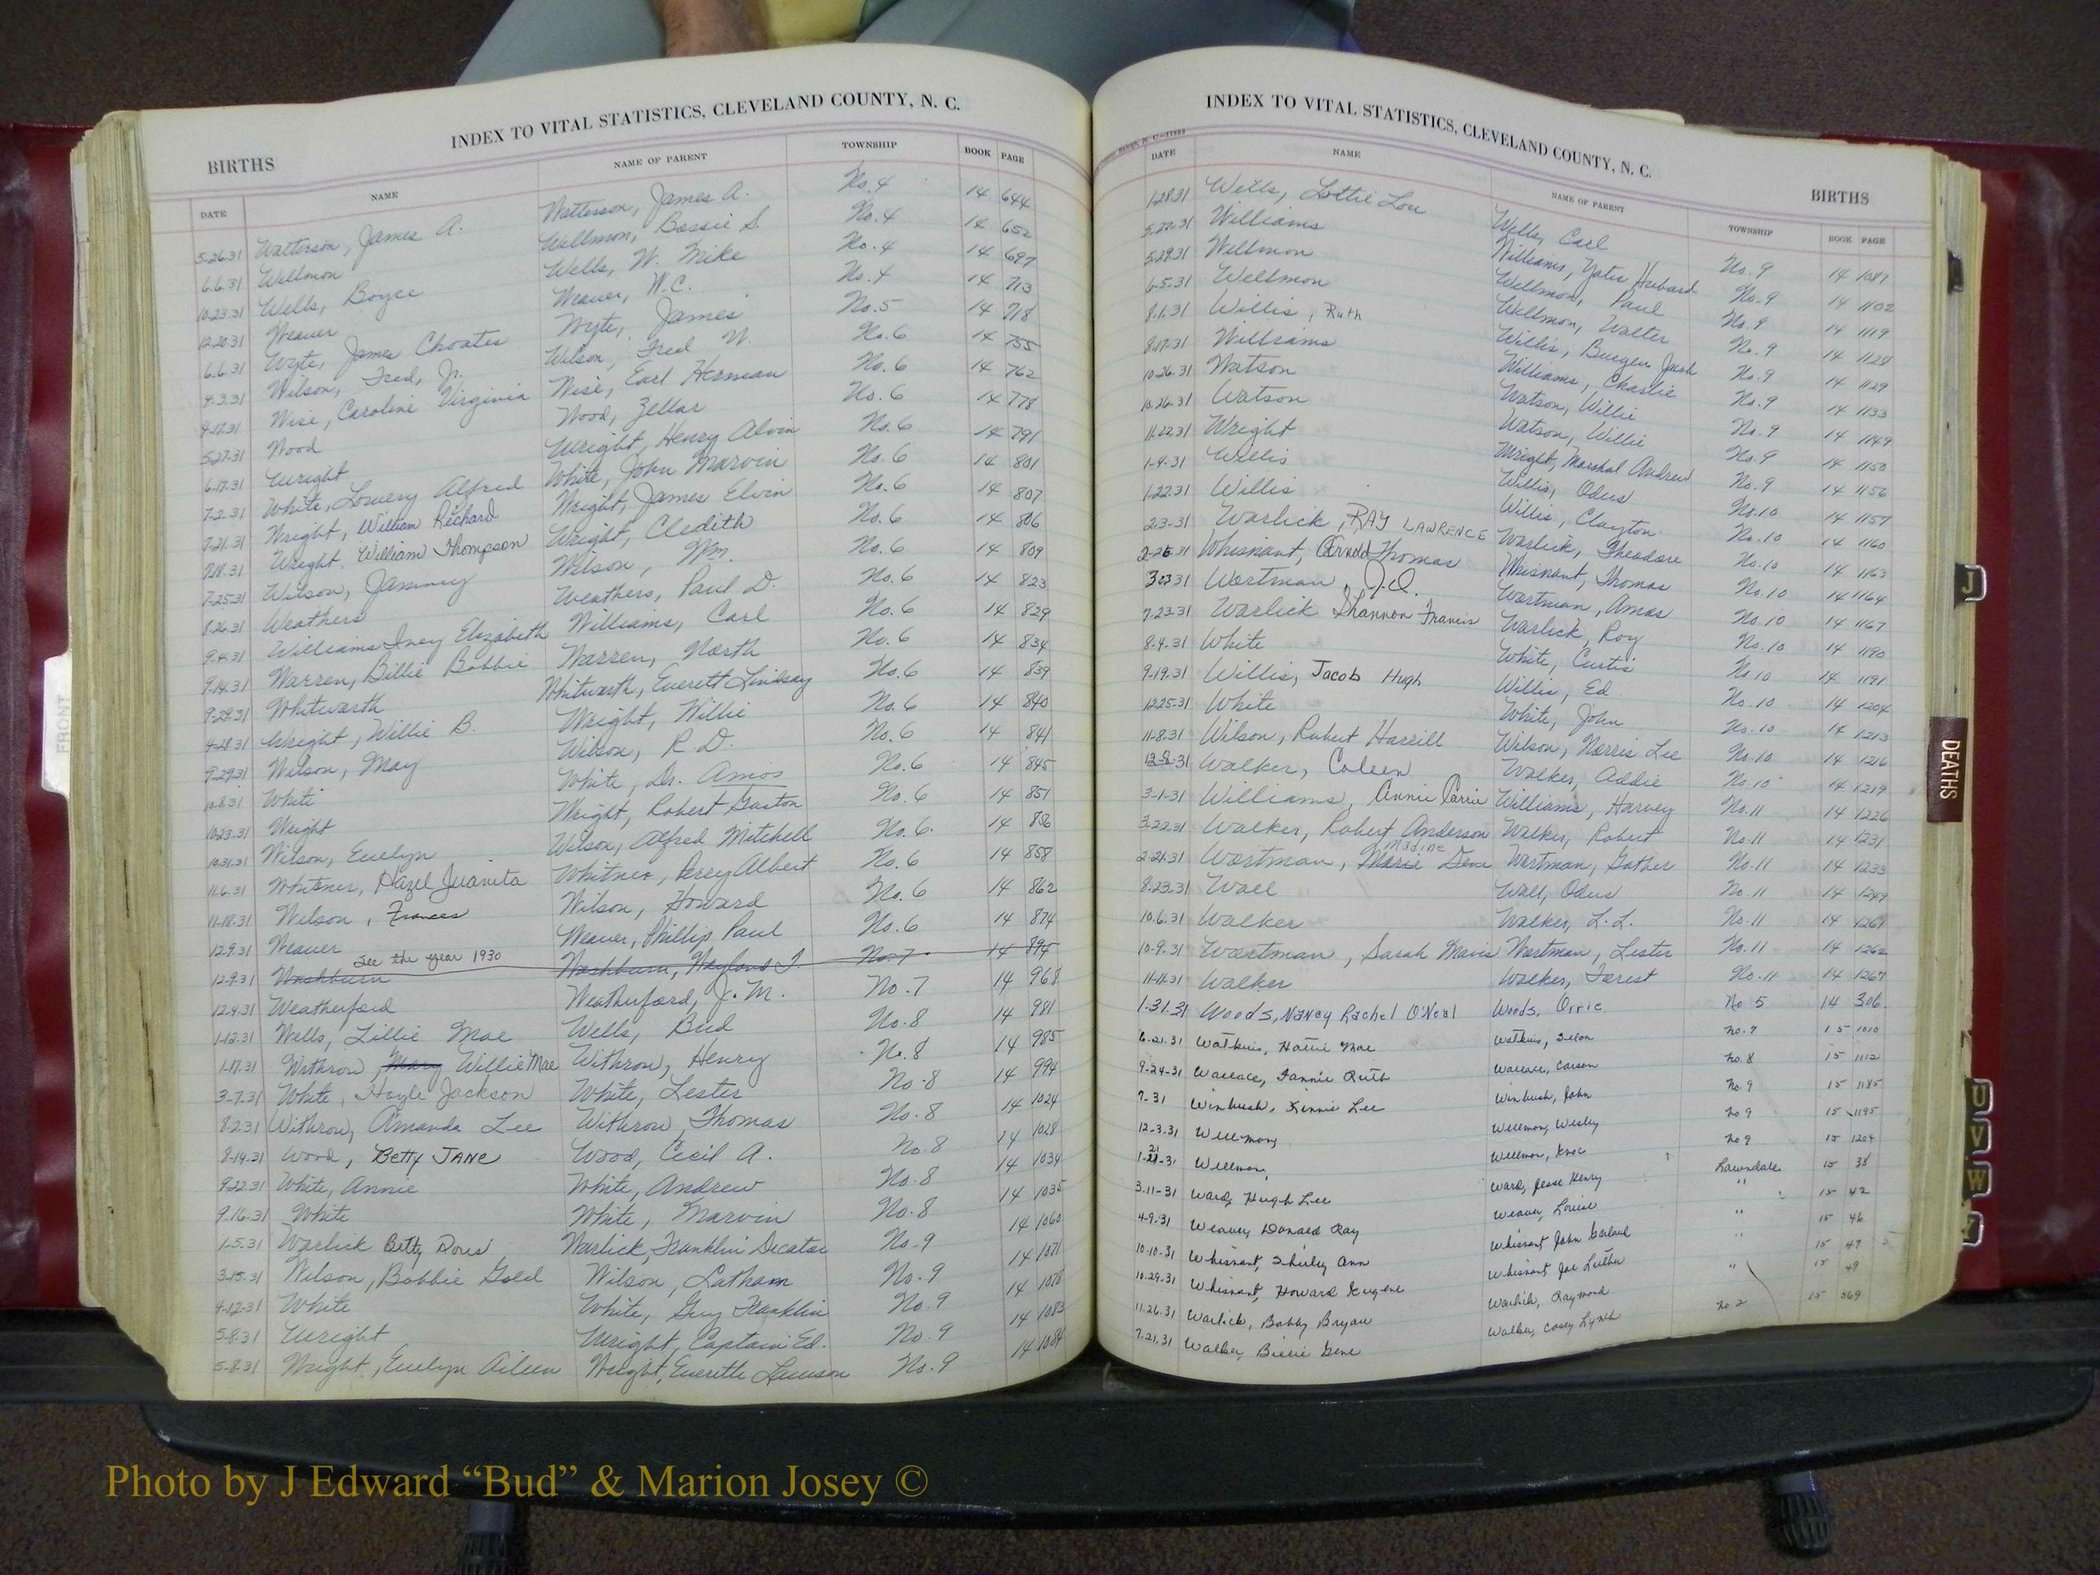 INDEX TO VITAL STATISTICS, CLEVELAND COUNTY, N. C.
BIRTHS
DATE NAME NAME OF PARENT TOWNSHIP BOOK PAGE
5-26-31 Watterson, James A. Watterson, James A. No. 4 14 644
6-6-31 Wellmon Wellmon, Bossie S. No. 4 14 652
10-23-31 Wells, Boyce Wells, W. Mike No. 4 14 697
12-20-31 Weaver Weaver, W. C. No. 4 14 713
6-6-31 Wyte, James Choates Wyte, James No. 5 14 718
4-3-31 Wilson, Fred, Jr. Wilson, Fred W. No. 6 14 755
4-17-31 Wise, Caroline Virginia Wise, Earl Herman No. 6 14 762
5-27-31 Wood Wood, Zellar No. 6 14 778
6-17-31 Wright Wright, Henry Alvin No. 6 14 791
7-2-31 White, Lowery Alfred White, John Marvin No. 6 14 801
7-21-31 Wright, William Richard Wright, James Elvin No. 6 14 807
7-18-31 Wright, William Thompson Wright, Cledith No. 6 14 806
7-25-31 Wilson, Jammey Wilson, Wm. No. 6 14 809
8-26-31 Weathers Weathers, Paul D. No. 6 14 823
9-4-31 Williams Iney Elizabeth Williams, Carl No. 6 14 829
9-14-31 Warren, Billie Bobbie Warren, North No. 6 14 834
9-29-31 Whitworth Whitworth, Everett Lindsay No. 6 14 839
4-28-31 Wright, Willie B. Wright, Willie No. 6 14 840
9-29-31 Wilson, May Wilson, R D. No. 6 14 841
10-8-31 White White, Dr. Amos No. 6 14 845
10-23-31 Wright Wright, Robert Gaston No. 6 14 851
10-31-31 Wilson, Evelyn Wilson, Alfred Mitchell No. 6. 14 856
11-6-31 Whitener, Hazel Juanita Whitner, Perry Albert No. 6 14 858
11-18-31 Wilson, Frances Wilson, Howard No. 6 14 862
12-9-31 Weaver Weaver, Phillip Paul No. 6 14 874
See the year 1930
12-9-31 Washburn Washburn, No. 7 14 894
12-4-31 Weatherford Weatherford, J. M. No. 7 14 968
1-12-31 Wells, Lillie Mae Wells, Bud No. 8 14 981
1-17-31 Withrow, Mary Willie Mae Withrow, Henry No. 8 14 985
3-7-31 White, Hoyle Jackson White, Lester No. 8 14 994
8-2-31 Withrow, Amanda Lee Withrow, Thomas No. 8 14 1024
8-19-31 Wood, Betty JANE Wood, Cecil A. No. 8 14 1028
9-22-31 White, Annie White, Andrew No. 8 14 1034
9-16-31 White White, Marvin No. 8 14 1035
1-5-31 Warlick Betty Doris Warlick, Franklin Decator No. 9 14 1060
3-15-31 Wilson, Bobbie Gold Wilson, Latham No. 9 14 1071
4-12-31 White White, Guy Franklin No. 9 14 1078
5-8-31 Wright Wright, Captain Ed. No. 9 14 1083
5-8-31 Wright, Evelyn Aileen Wright, Everette Lawson No. 9 14 1084
INDEX TO VITAL STATISTICS, CLEVELAND COUNTY, N. C.
BIRTHS
DATE NAME NAME OF PARENT TOWNSHIP BOOK PAGE
1-28-31 Wells, Lottie Lou Wells, Carl No. 9 14 1087
5-22-31 Williams Williams, Yates Hubard No. 9 14 1102
5-29-31 Wellmon Wellmon, Paul No. 9 14 1119
6-5-31 Wellmon Wellmon, Walter No. 9 14 1128
8-1-31 Willis, Ruth Willis, Burgen Jush No. 9 14 1129
8-17-31 Williams Williams, Charlie No. 9 14 1133
10-26-31 Watson Watson, Willie No. 9 14 1149
10-26-31 Watson Watson, Willie No. 9 14 1150
11-22-31 Wright Wright, Marshal Andrew No. 9 14 1156
1-4-31 Willis Willis, Odus No. 10 14 1157
1-22-31 Willis Willis, Clayton No. 10 14 1160
2-3-31 Warlick, RAY LAWRENCE Warlick, Theodore No. 10 14 1163
2-25-31 Whisnant, Arnold Thomas Whisnant, Thomas No. 10 14 1164
3-23-31 Wortman, J.Q. Wortman, Amos No. 10 14 1167
7-23-31 Warlick Shannon Francis Warlick, Roy No. 10 14 1190
8-4-31 White White, Curtis No 10 14 1191
9-19-31 Willis, Jacob Hugh Willis, Ed No. 10 14 1204
12-25-31 White White, John No. 10 14 1213
11-8-31 Wilson, Robert Harrill Wilson, Norris Lee No. 10 14 1216
12-8-31 Walker, Coleen Walker, Addie No. 10 14 1219
3-1-31 Williams, Annie Carrie Williams, Harvey No. 11 14 1226
3-22-31 Walker, Robert Anderson Walker, Robert No. 11 14 1231
2-21-31 Wortman, Marie Dene Wortman, Gather No. 11 14 1233
Madine
8-23-31 Wall Wall, Odus No. 11 14 1249
10-6-31 Walker Walker, L. L. No. 11 14 1261
10-9-31 Wortman, Sarah Mavis Wortman, Lester No. 11 14 1262
11-11-31 Walker Walker, Forest No. 11 14 1267
1-31-31 Woods, Nancy Rachel O'Neal Woods, Orrie No 5 14 306
6-21-31 Watkins, Hattie Mae Watkins, No. 7 15 1010
9-24-31 Wallace, Fannie Ruth Wallace, Carson No. 8 15 1112
7-31 Winbush, Linnie Lee Winbush, John No. 9 15 1185
12-3-31 Wellmon, Wellmon, Wesley No 9 15 1195
1-21-31 Wellmon, Wellmon, Knox No 9 15 1204
3-11-31 Ward, Hugh Lee Ward, Jesse Henry Lawndale 15 38
4-9-31 Weaver, Donald Ray Weaver, Louise " 15 42
10-10-31 Whisnant, Shirley Ann Whisnant, John Garland " 15 46
10-29-31 Whisnant, Howard Eugene Whisnant, Joe Luther " 15 47
11-26-31 Warlick, Bobby Bryan Warlick, Raymond " 15 49
7-21-31 Walker, Billie Gene Walker, Casey Lynch No. 2 15 569
FRONT
J
DEATHS
U
V
W
Y
Photo by J Edward “Bud” & Marion Josey ©